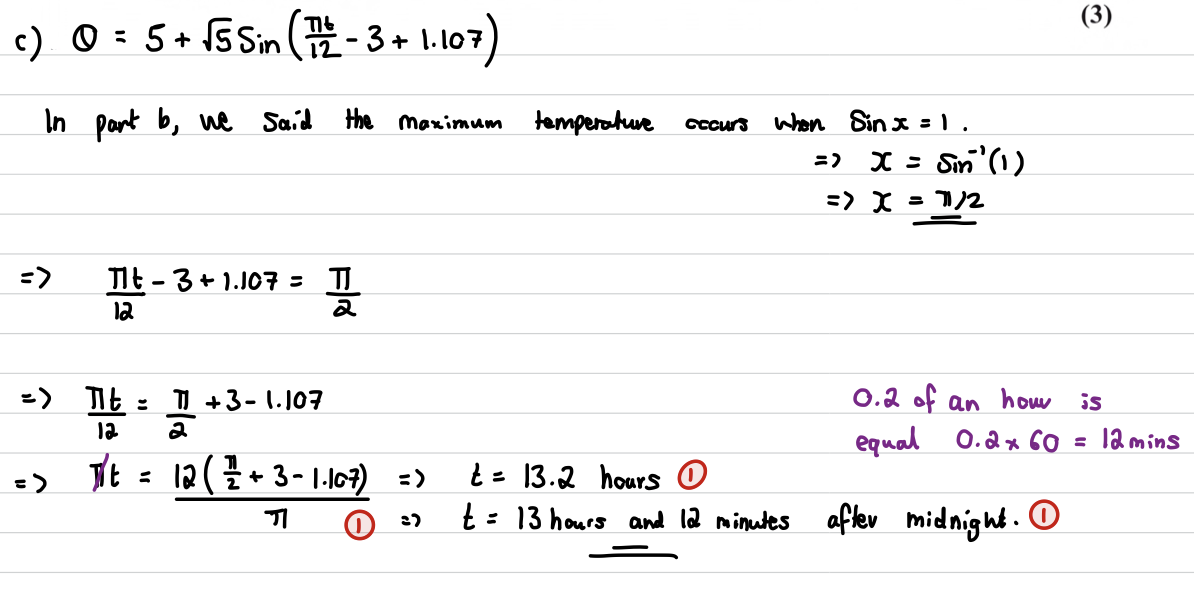 (3)
c) θ = 5 + √5 Sin (πt/12 - 3 + 1.107)
In part b, we said the maximum temperature occurs when Sin x = 1.
=> x = Sin⁻¹(1)
=> x = π/2
=> πt/12 - 3 + 1.107 = π/2
=> πt/12 = π/2 + 3 - 1.107
0.2 of an hour is
equal 0.2 x 60 = 12 mins
=> πt = 12(π/2 + 3 - 1.107)/π ① => t = 13.2 hours ①
=> t = 13 hours and 12 minutes after midnight. ①